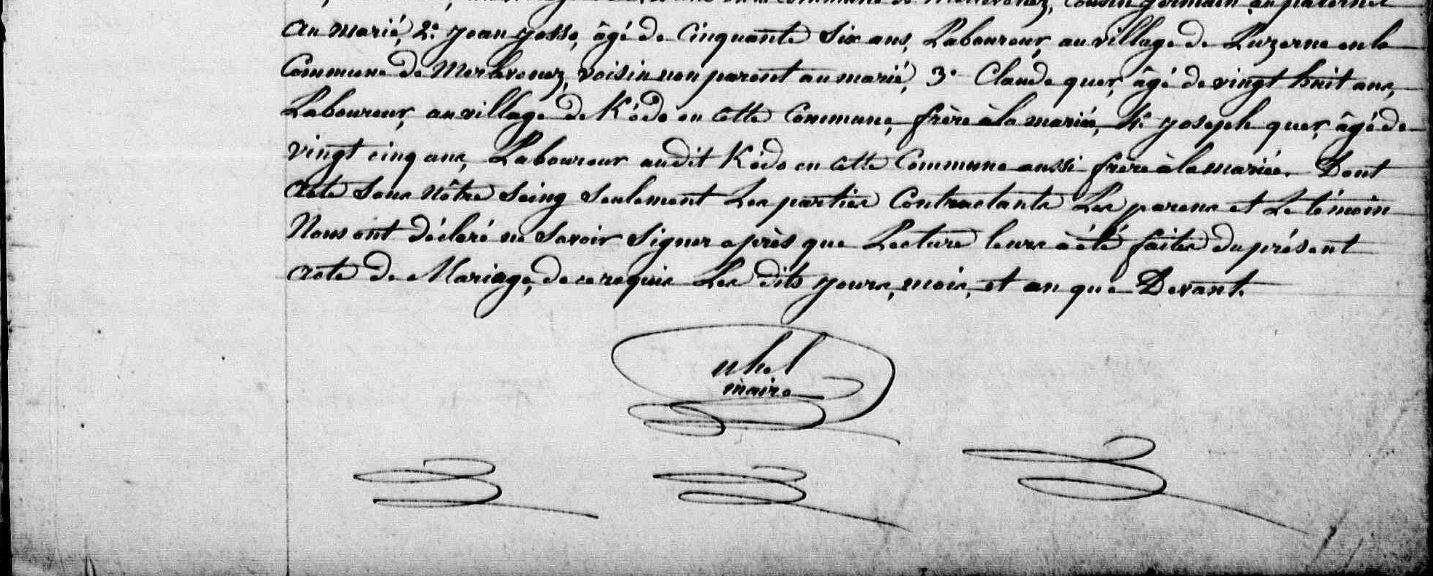 commune de Merlevenez, cousin germain au paternel
au marié, 2.e yean yosse, âgé de Cinquante Six ans, Laboureur, au village de Luzerne en la
Commune de Merlevenez, voisin non parent au marié, 3.e Claude quer, âgé de vingt huit ans,
Laboureur, au village de Kdo en cette Commune, frère à la mariée, 4.e yoseph quer, âgé de
vingt cinq ans, Laboureur audit Kdo en cette Commune aussi frère à la mariée. Dont
Acte Sous Nôtre Seing Seulement Les parties Contractants Les parens et Le témoin
Nous ont déclaré ne Savoir Signer après que Lecture leurs à été faites du présent
Acte de Mariage, de ce requis Les dits yours, mois, et an que Devant.
uhel
maire